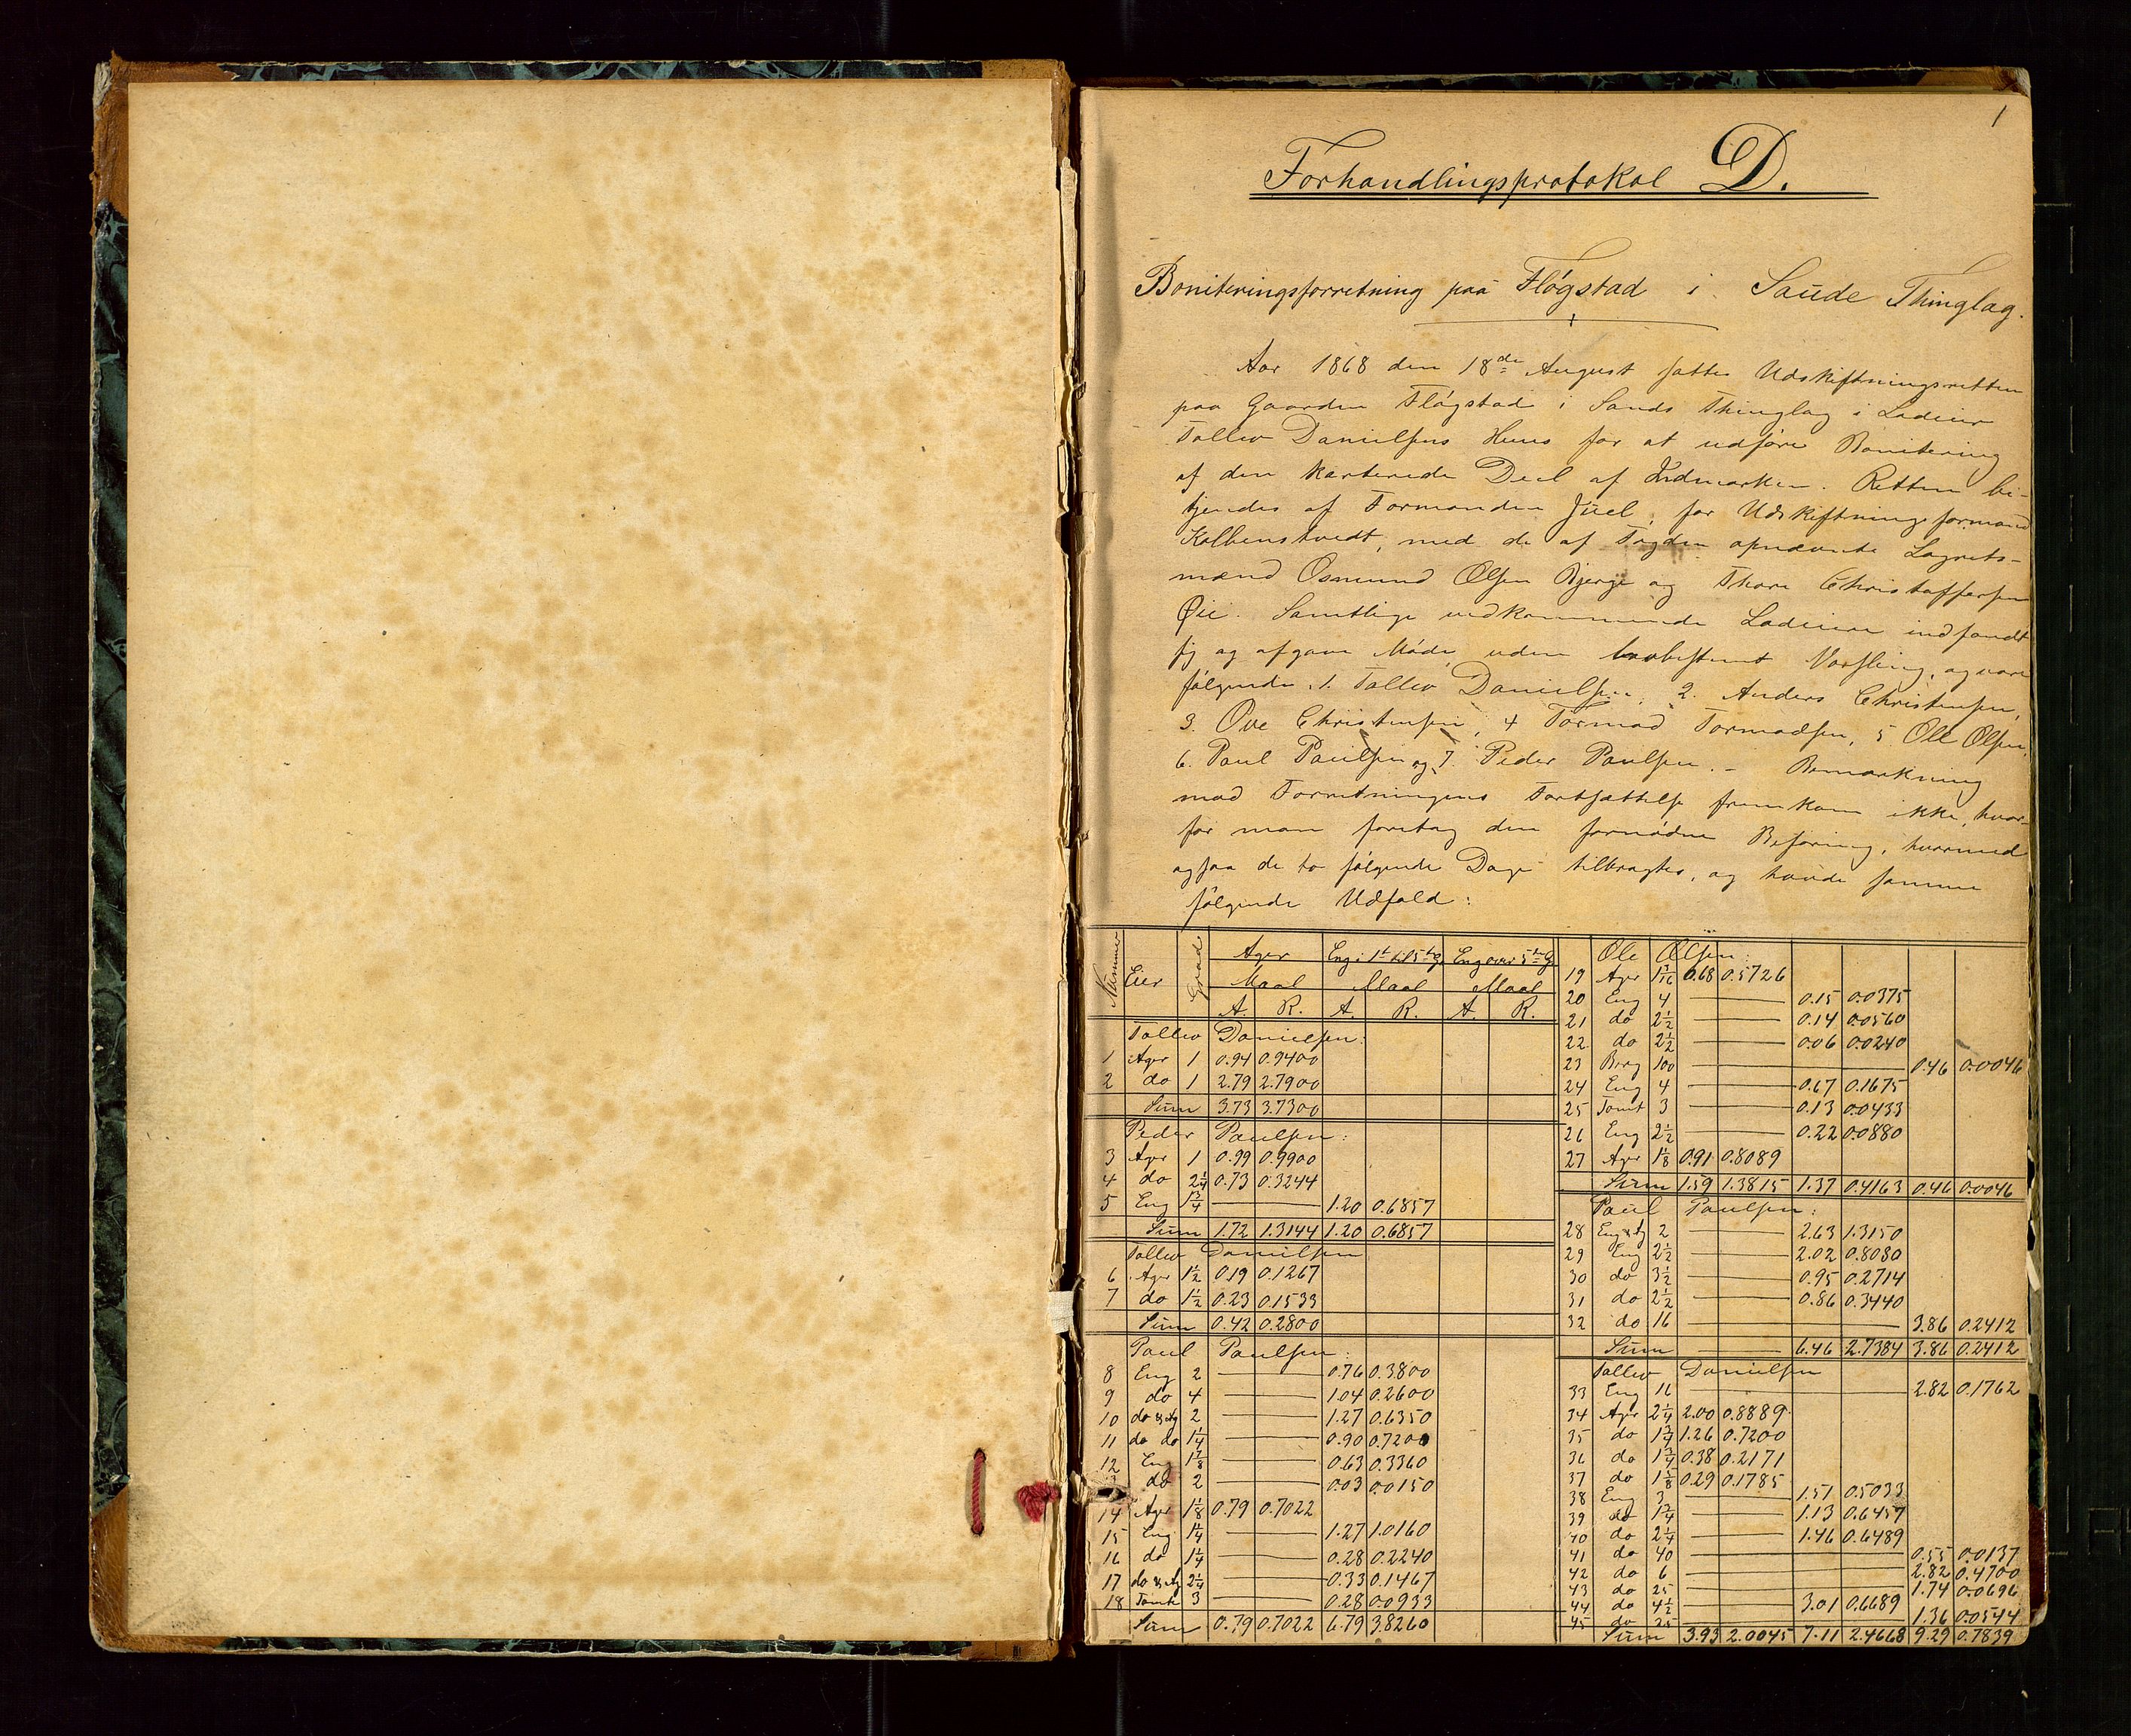 1
Forhandlingsprotokol D.
Boniteringsforretning paa Fløgstad i Saude Thinglag.
Aar 1868 den 18de August sattes Udskiftningsretten
paa Gaarden Fløgstad i Sands Thinglag i Lodeier
Tollev Danielsens Huus for at udføre Bonitering
af den karterede Deel af Udmarken. Retten be-
tjendes af Formanden Juel, for Udskiftningsformand
Kolbenstvedt, med de af Fogden opnævnte Lagretts-
mænd Osmund Olsen Bjerge og Thore Christoffersen
Øie. Samtlige vedkommende Lodeiere indfandt
sig og afgave Møde uden lovbestemt Varsling, og vare
følgende: 1. Tollev Danielsen, 2. Anders Christensen,
3. Ove Christensen, 4 Tormod Tormodsen, 5. Ole Olsen,
6. Paul Paulsen og 7. Peder Paulsen. – Bemærkning
mod Forretningens Fortsættelse fremkom ikke, hvor-
for man foretog den fornødne Befaring, hvormed
ogsaa de to følgende Dage tilbragtes, og havde samme
følgende Udfald:
Nummer Eier Grad Ager Eng: 1st til 5te G. Eng over 5te G.
Maal Maal Maal
A. R. A. R. A. R.
Tollev Danielsen:
1 Ager 1 0.94 0.9400
2 do 1 2.79 2.7900
Sum 3.73 3.7300
Peder Paulsen:
3 Ager 1 0.99 0.9900
4 do 2 1/4 0.73 0.3244
5 Eng 1 3/4 1.20 0.6857
Sum 1.72 1.3144 1.20 0.6857
Tollev Danielsen
6 Ager 1 1/2 0.19 0.1267
7 do 1 1/2 0.23 0.1533
Sum 0.42 0.2800
Paul Paulsen:
8 Eng 2 0.76 0.3800
9 do 4 1.04 0.2600
10 do & Ag 2 1.27 0.6350
11 do do 1 1/4 0.90 0.7200
12 Eng 1 7/8 0.63 0.3360
do 2 0.03 0.0150
14 Ager 1 1/8 0.79 0.7022
15 Eng 1 1/4 1.27 1.0160
16 do 1 1/4 0.28 0.2240
17 do & Ag 2 1/4 0.33 0.1467
18 Tomt 3 0.28 0.0933
Sum 0.79 0.7022 6.79 3.8260
Ole Olsen:
19 Ager 1 3/16 0.68 0.5726
20 Eng 4 0.15 0.0375
21 do 2 1/2 0.14 0.0560
22 do 2 1/2 0.06 0.0240
23 Berg 100 0.46 0.0046
24 Eng 4 0.67 0.1675
25 Tomt 3 0.13 0.0433
26 Eng 2 1/2 0.22 0.0880
27 Ager 1 1/8 0.91 0.8089
Sum 1.59 1.3815 1.37 0.4163 0.46 0.0046
Paul Paulsen:
28 Eng & Ag 2 2.63 1.3150
29 Eng 2 1/2 2.02 0.8080
30 do 3 1/2 0.95 0.2714
31 do 2 1/2 0.86 0.3440
32 do 16 3.86 0.2412
Sum 6.46 2.7384 3.86 0.2412
Tollev Danielsen
33 Eng 16 2.82 0.1762
34 Ager 2 1/4 2.00 0.8889
35 do 1 3/4 1.26 0.7200
36 do 1 3/4 0.38 0.2171
37 do 1 5/8 0.29 0.1785
38 Eng 3 1.51 0.5033
39 do 1 3/4 1.13 0.6457
40 do 2 1/4 1.46 0.6489
41 do 40 0.55 0.0137
42 do 6 2.82 0.4700
43 do 25 1.74 0.0696
44 do 4 1/2 3.01 0.6689
45 do 25 1.36 0.0544
Sum 3.93 2.0045 7.11 2.4668 9.29 0.7839